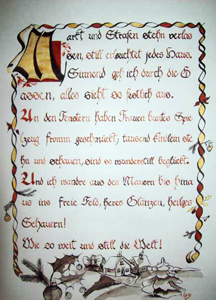 Markt und Straßen stehn verlas
sen, still erleuchtet jedes Haus.
Sinnend geh ich durch die G
assen, alles sieht so festlich aus.
An den Fenstern haben Frauen buntes Spie
lzeug fromm geschmückt, tausend Kindlein ste
hn und schauen, sind so wunderstill beglückt.
Und ich wandre aus den Mauern bis hina
us ins freie Feld, hehres Glänzen, heilges
Schauern!
Wie so weit und still die Welt!